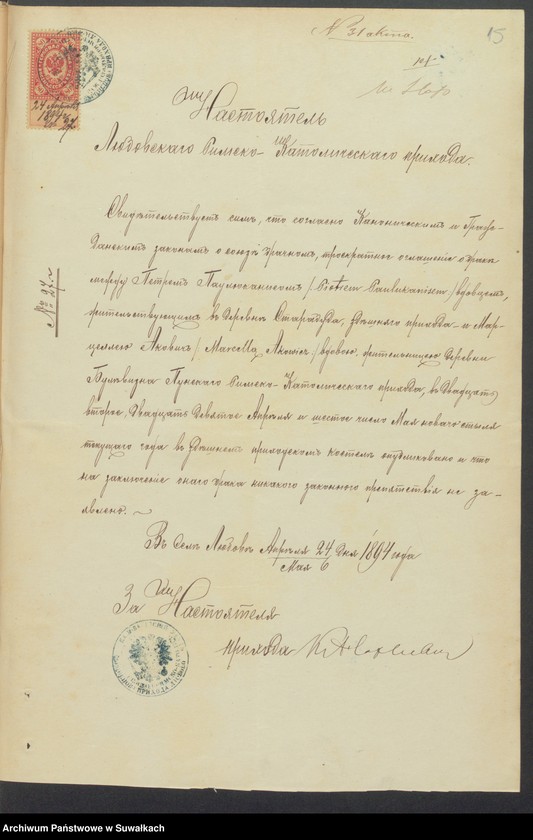 N 31 aktina.
15
24 Апрѣля
1894 года
Настоятель
Людовскаго Римско-Католическаго прихода.
Свидѣтельствуетъ симъ, что согласно Каноническимъ и Граж-
данскимъ законамъ о союзѣ брачномъ, троекратное оглашеніе о бракѣ
между Петромъ Паулюканисомъ /Piotrem Paulukanisem/ вдовцемъ,
жительствующимъ въ деревнѣ Старадуда, здѣшняго прихода и Мар-
целлею Аковичъ /Marcellą Akowicz/ вдовою жительницею деревни
Пунскаго Римско-Католическаго прихода, въ двадцать
второе, двадцать девятое Апрѣля и шестое число Мая новаго стиля
текущаго года въ здѣшнемъ приходскомъ костелѣ опубликовано и что
на заключеніе онаго брака никакого законнаго препятствія не за-
явлено.
№ 27.
Въ Селѣ Людовѣ Апрѣля 24 / Мая 6 дня 1894 года
За Настоятеля
прихода
Archiwum Państwowe w Suwałkach